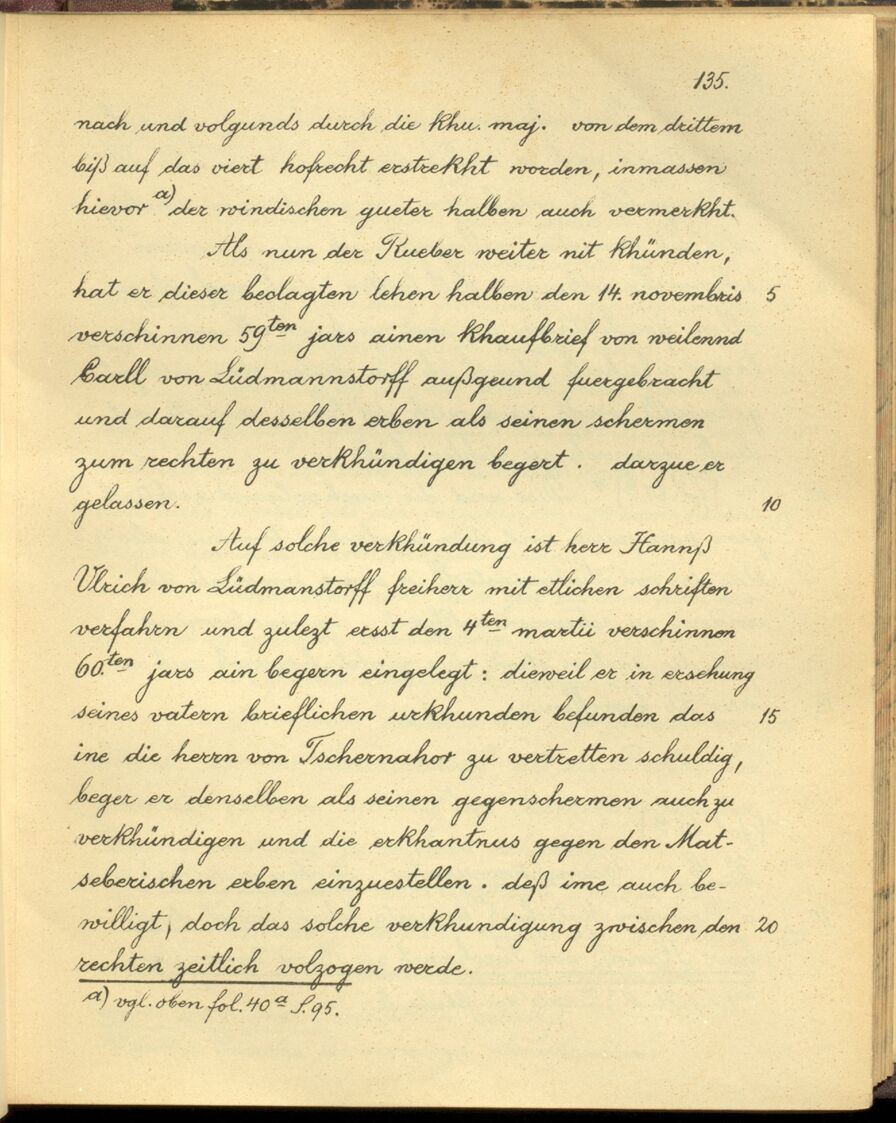 135.
nach und volgunds durch die khu. maj. von dem drittem
biß auf das viert hofrecht erstrekht worden, inmassen
hievor a) der windischen gueter halben auch vermerkht.
Als nun der Rueber weiter nit khünden,
hat er dieser beclagten lehen halben den 14. novembris 5
verschinnen 59ten jars ainen khaufbrief von weilennd
Carll von Lüdmannstorff außgeund fuergebracht
und darauf desselben erben als seinen schermen
zum rechten zu verkhündigen begert. darzue er
gelassen. 10
Auf solche verkhündung ist herr Hannß
Ulrich von Lüdmanstorff freiherr mit etlichen schriften
verfahrn und zulezt ersst den 4ten martii verschinnen
60.ten jars ain begern eingelegt: dieweil er in ersehung
seines vatern brieflichen urkhunden befunden das 15
ine die herrn von Tschernahor zu vertretten schuldig,
beger er denselben als seinen gegenschermen auch zu
verkhündigen und die erkhantnus gegen den Mat-
seberischen erben einzuestellen. deß ime auch be-
willigt, doch das solche verkhundigung zwischen den 20
rechten zeitlich volzogen werde.
a) vgl. oben fol. 40a S. 95.